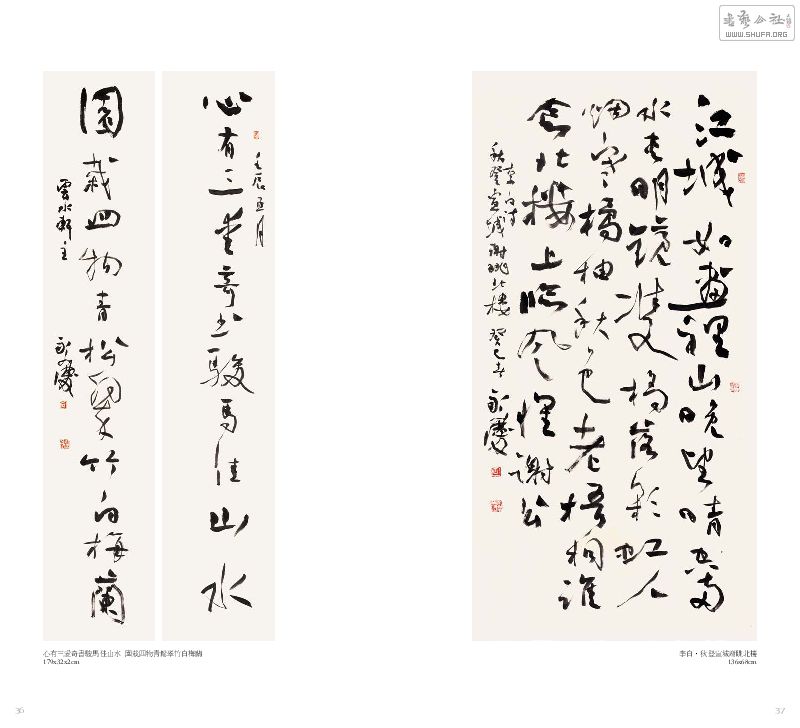 書藝公社
WWW.SHUFA.ORG
心有三愛奇书駿馬佳山水
壬辰五月
園栽四物青松翠竹白梅蘭
雲水軒主
永慶
江城如畫裡山晚望晴空兩
水夾明鏡雙橋落彩虹人
烟寒橘柚秋色老梧桐誰
念北樓上臨风懷謝公
李白詩
秋登宣城謝脁北楼 癸巳春 永慶
心有三爱奇書駿馬佳山水 園栽四物青松翠竹白梅蘭
179x32x2cm
李白・秋登宣城謝脁北樓
136x68cm
36
37